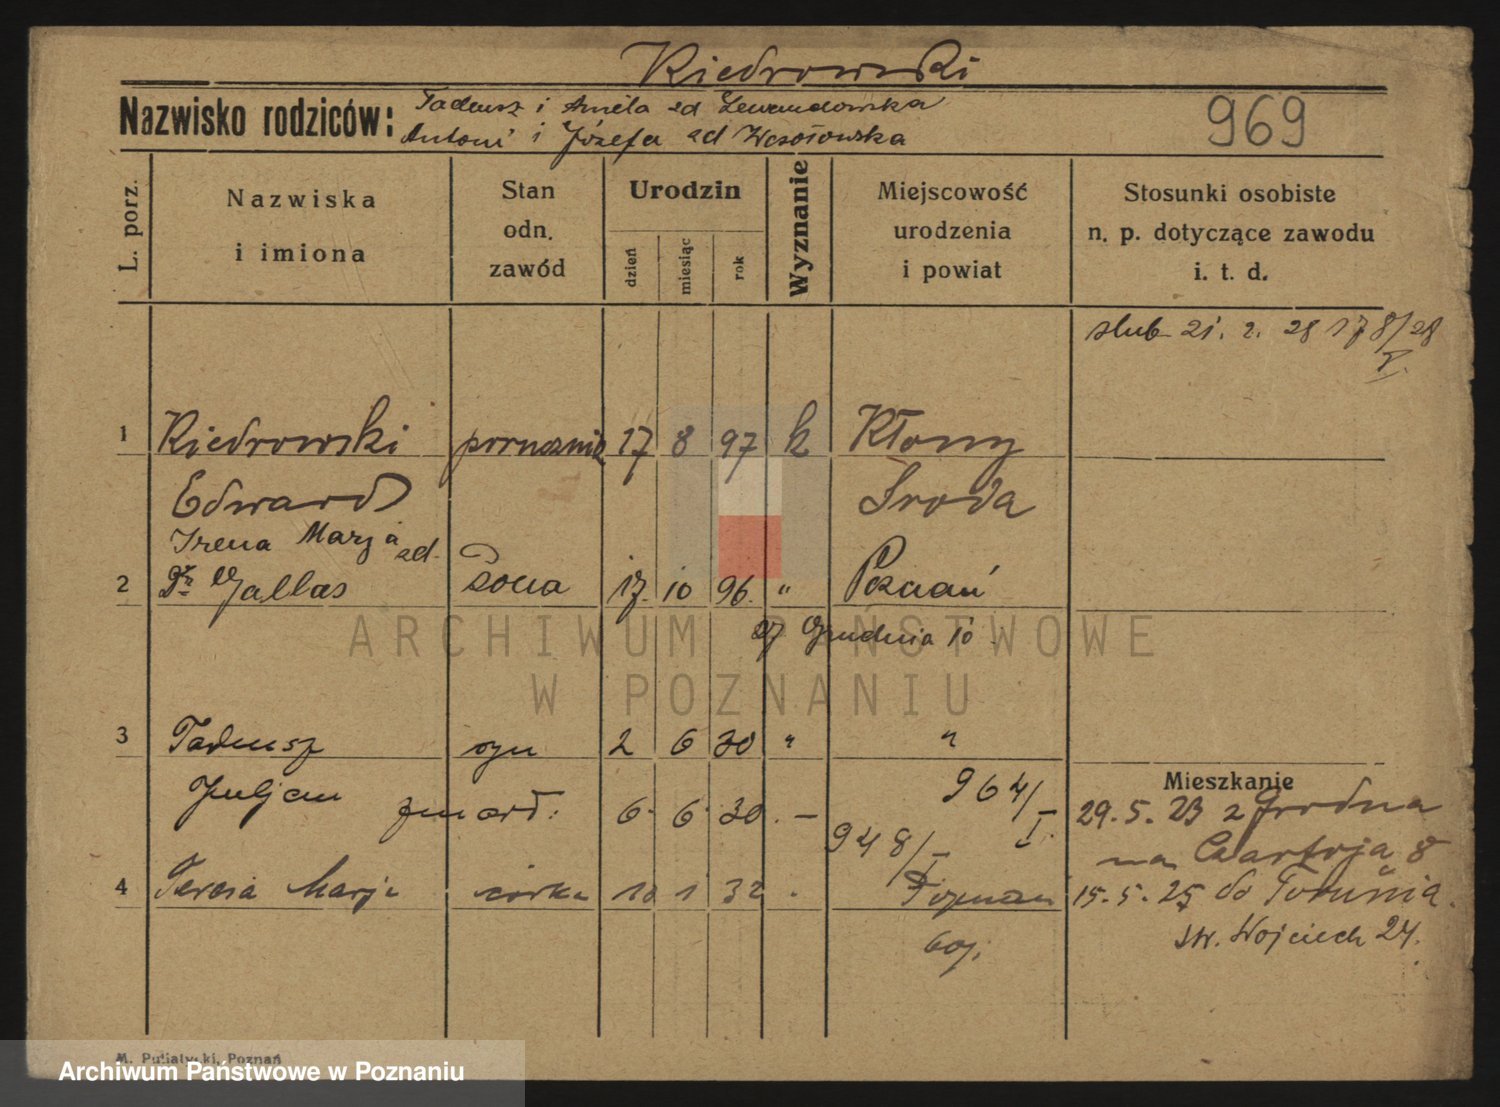 Kiedrowski
Nazwisko rodziców: Tadeusz i Aniela zd Lewandowska
Antoni i Józefa zd Wesołowska
969
L. porz.
Nazwiska i imiona
Stan odn. zawód
Urodzin
dzień
miesiąc
rok
Wyznanie
Miejscowość urodzenia i powiat
Stosunki osobiste n. p. dotyczące zawodu i. t. d.
slub 21. 2. 28 178/28
V.
1 Kiedrowski porucznik 17 8 97 k Kłony
Edward Środa
Irena Marja zd.
2 Wallas żona 17. 10 96. " Poznań
27 Grudnia 10.
ARCHIWUM PAŃSTWOWE
W POZNANIU
3 Tadeusz syn 2 6 30 " "
Juljan zmarł: 6. 6. 30. — 964/I.
948/I
Mieszkanie
29.5.23 z Grodna
na Czartorja 8
4 Teresa Marja córka 10 1 32 . Poznań
15.5.25 do Torunia.
św. Wojciech 24.
M. Putiatycki, Poznań
Archiwum Państwowe w Poznaniu